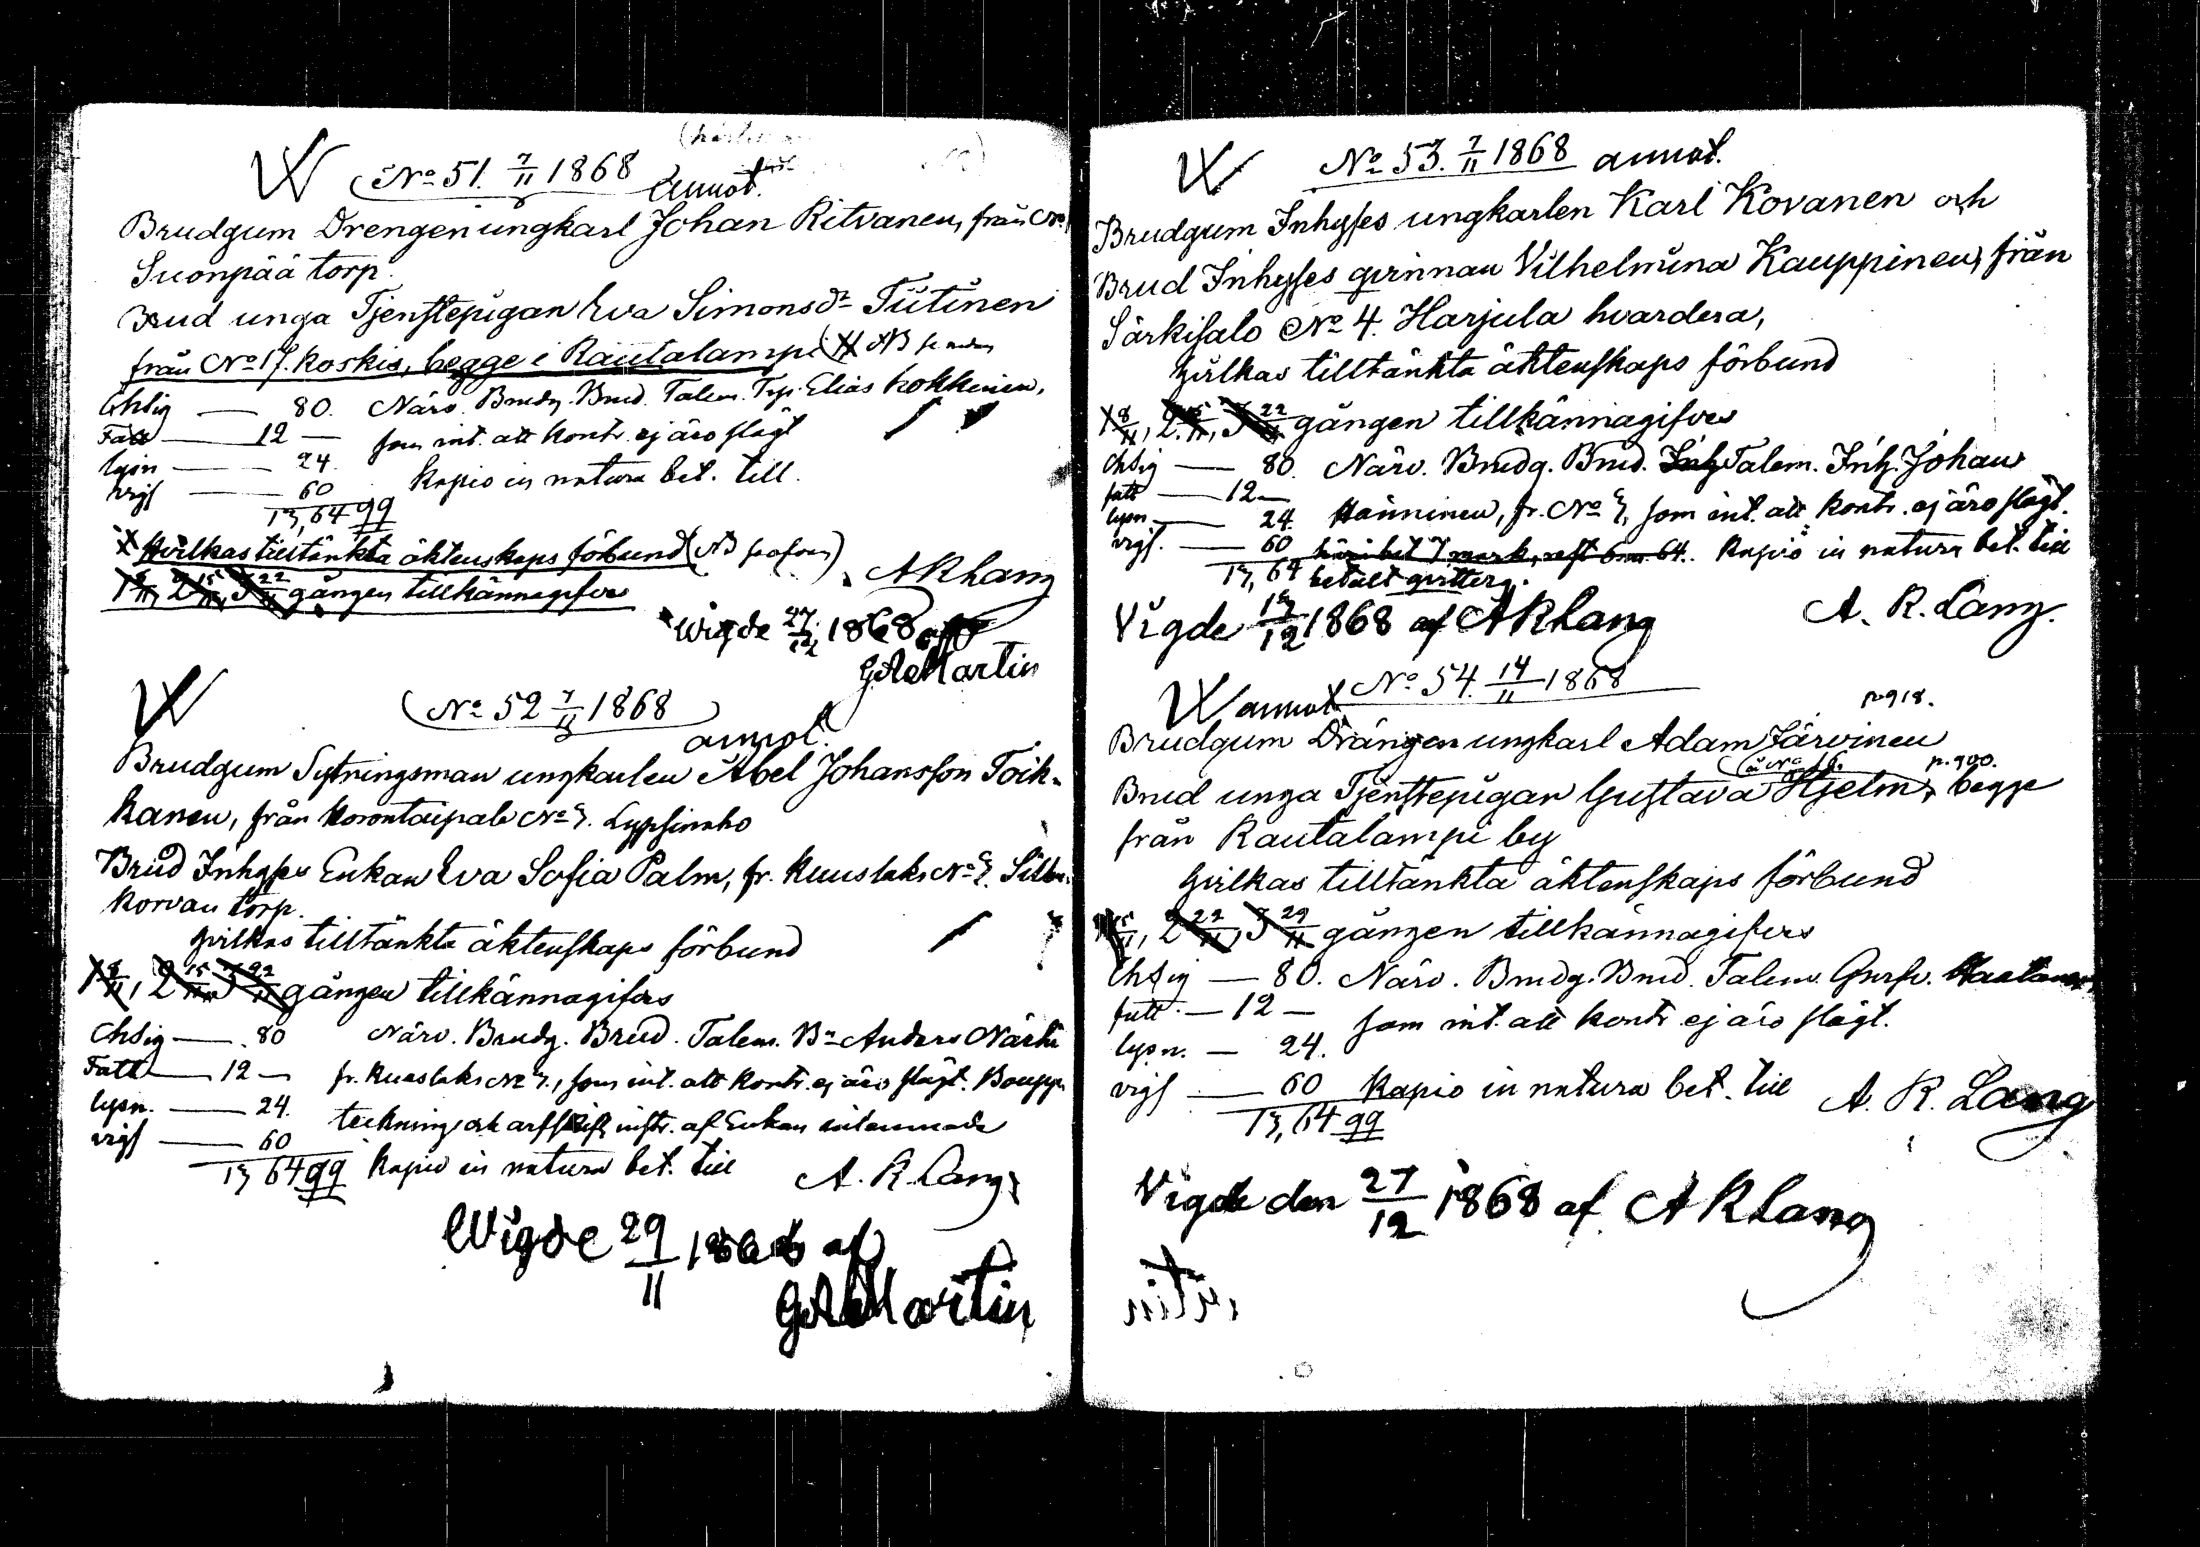 W No 51. 7/11 1868 annot.
Brudgum Drengen ungkarl Johan Ritvanen, från No
Suonpää torp.
Brud unga Tjenstepigan Eva Simonsdr Tiitinen
från No 17. Koskis, begge i Rautalampi
Chsig — 80. Närv. Brudg. Brud. Talem. Elias Kokkinen,
Fatt — 12 — som int. att kontr. ej äro slägt
lysn — 24. Kapio in natura bet. till.
vigs — 60
13,64 99
Hvilkas tilltänkta äktenskaps förbund
1 8/11, 2 15/11, 3 22/11 gången tillkännagifves
A R Lang
Wigde 27/12 1868 af
G A Martin
W No 52 7/11 1868
annot.
Brudgum Sytningsman ungkarlen Abel Johansson Toik-
kanen, från Korontaipale No 7.
Brud Inhyses Enkan Eva Sofia Palm, fr. Kuuslaks No 7.
Korvan torp.
hvilkas tilltänkta äktenskaps förbund
1 8/11, 2 15/11, 3 22/11 gången tillkännagifves
Chsig — 80 Närv. Brudg. Brud. Talem. Bn Anders Närhi
Fatt — 12 — fr. Kuuslaks No 7., som int. att kontr. ej äro slägt. Boupp
lysn. — 24. teckning och arfskifts instr. af Enkan inlemnade
vigs — 60
13,64 99 Kapio in natura bet. till A. R. Lang
Wigde 29/11 1868 af
G A Martin
W No 53. 7/11 1868 annot.
Brudgum Inhyses ungkarlen Karl Kovanen och
Brud Inhyses qvinnan Vilhelmina Kauppinen, från
Särkisalo No 4. Harjula hvardera,
hvilkas tilltänkta äktenskaps förbund
1 8/11, 2 15/11, 3 22/11 gången tillkännagifves
Chsig — 80. Närv. Brudg. Brud. Inh. Talem. Inh. Johan
fatt — 12 — Hänninen, fr. No 7, som int. att kontr. ej äro slägt.
lysn — 24.
vigs. — 60 häri bet 7 mark, rest 6 64. Kapio in natura bet. till
13,64 betalt qvitteras.
Vigde 13/12 1868 af A R Lang A. R. Lang.
W annot. No 54. 14/11 1868
p. 918.
Brudgum Drängen ungkarl Adam Järvinen
p. 900.
Brud unga Tjenstepigan Gustava Hjelm, begge
från Rautalampi by
hvilkas tilltänkta äktenskaps förbund
1 15/11, 2 22/11, 3 29/11 gången tillkännagifves
Chsig — 80. Närv. Brudg. Brud. Talem.
fatt. — 12 — som int. att kontr. ej äro slägt.
lysn. — 24.
vigs — 60 Kapio in natura bet. till A. R. Lang
13,64 99
Vigde den 27/12 1868 af A R Lang